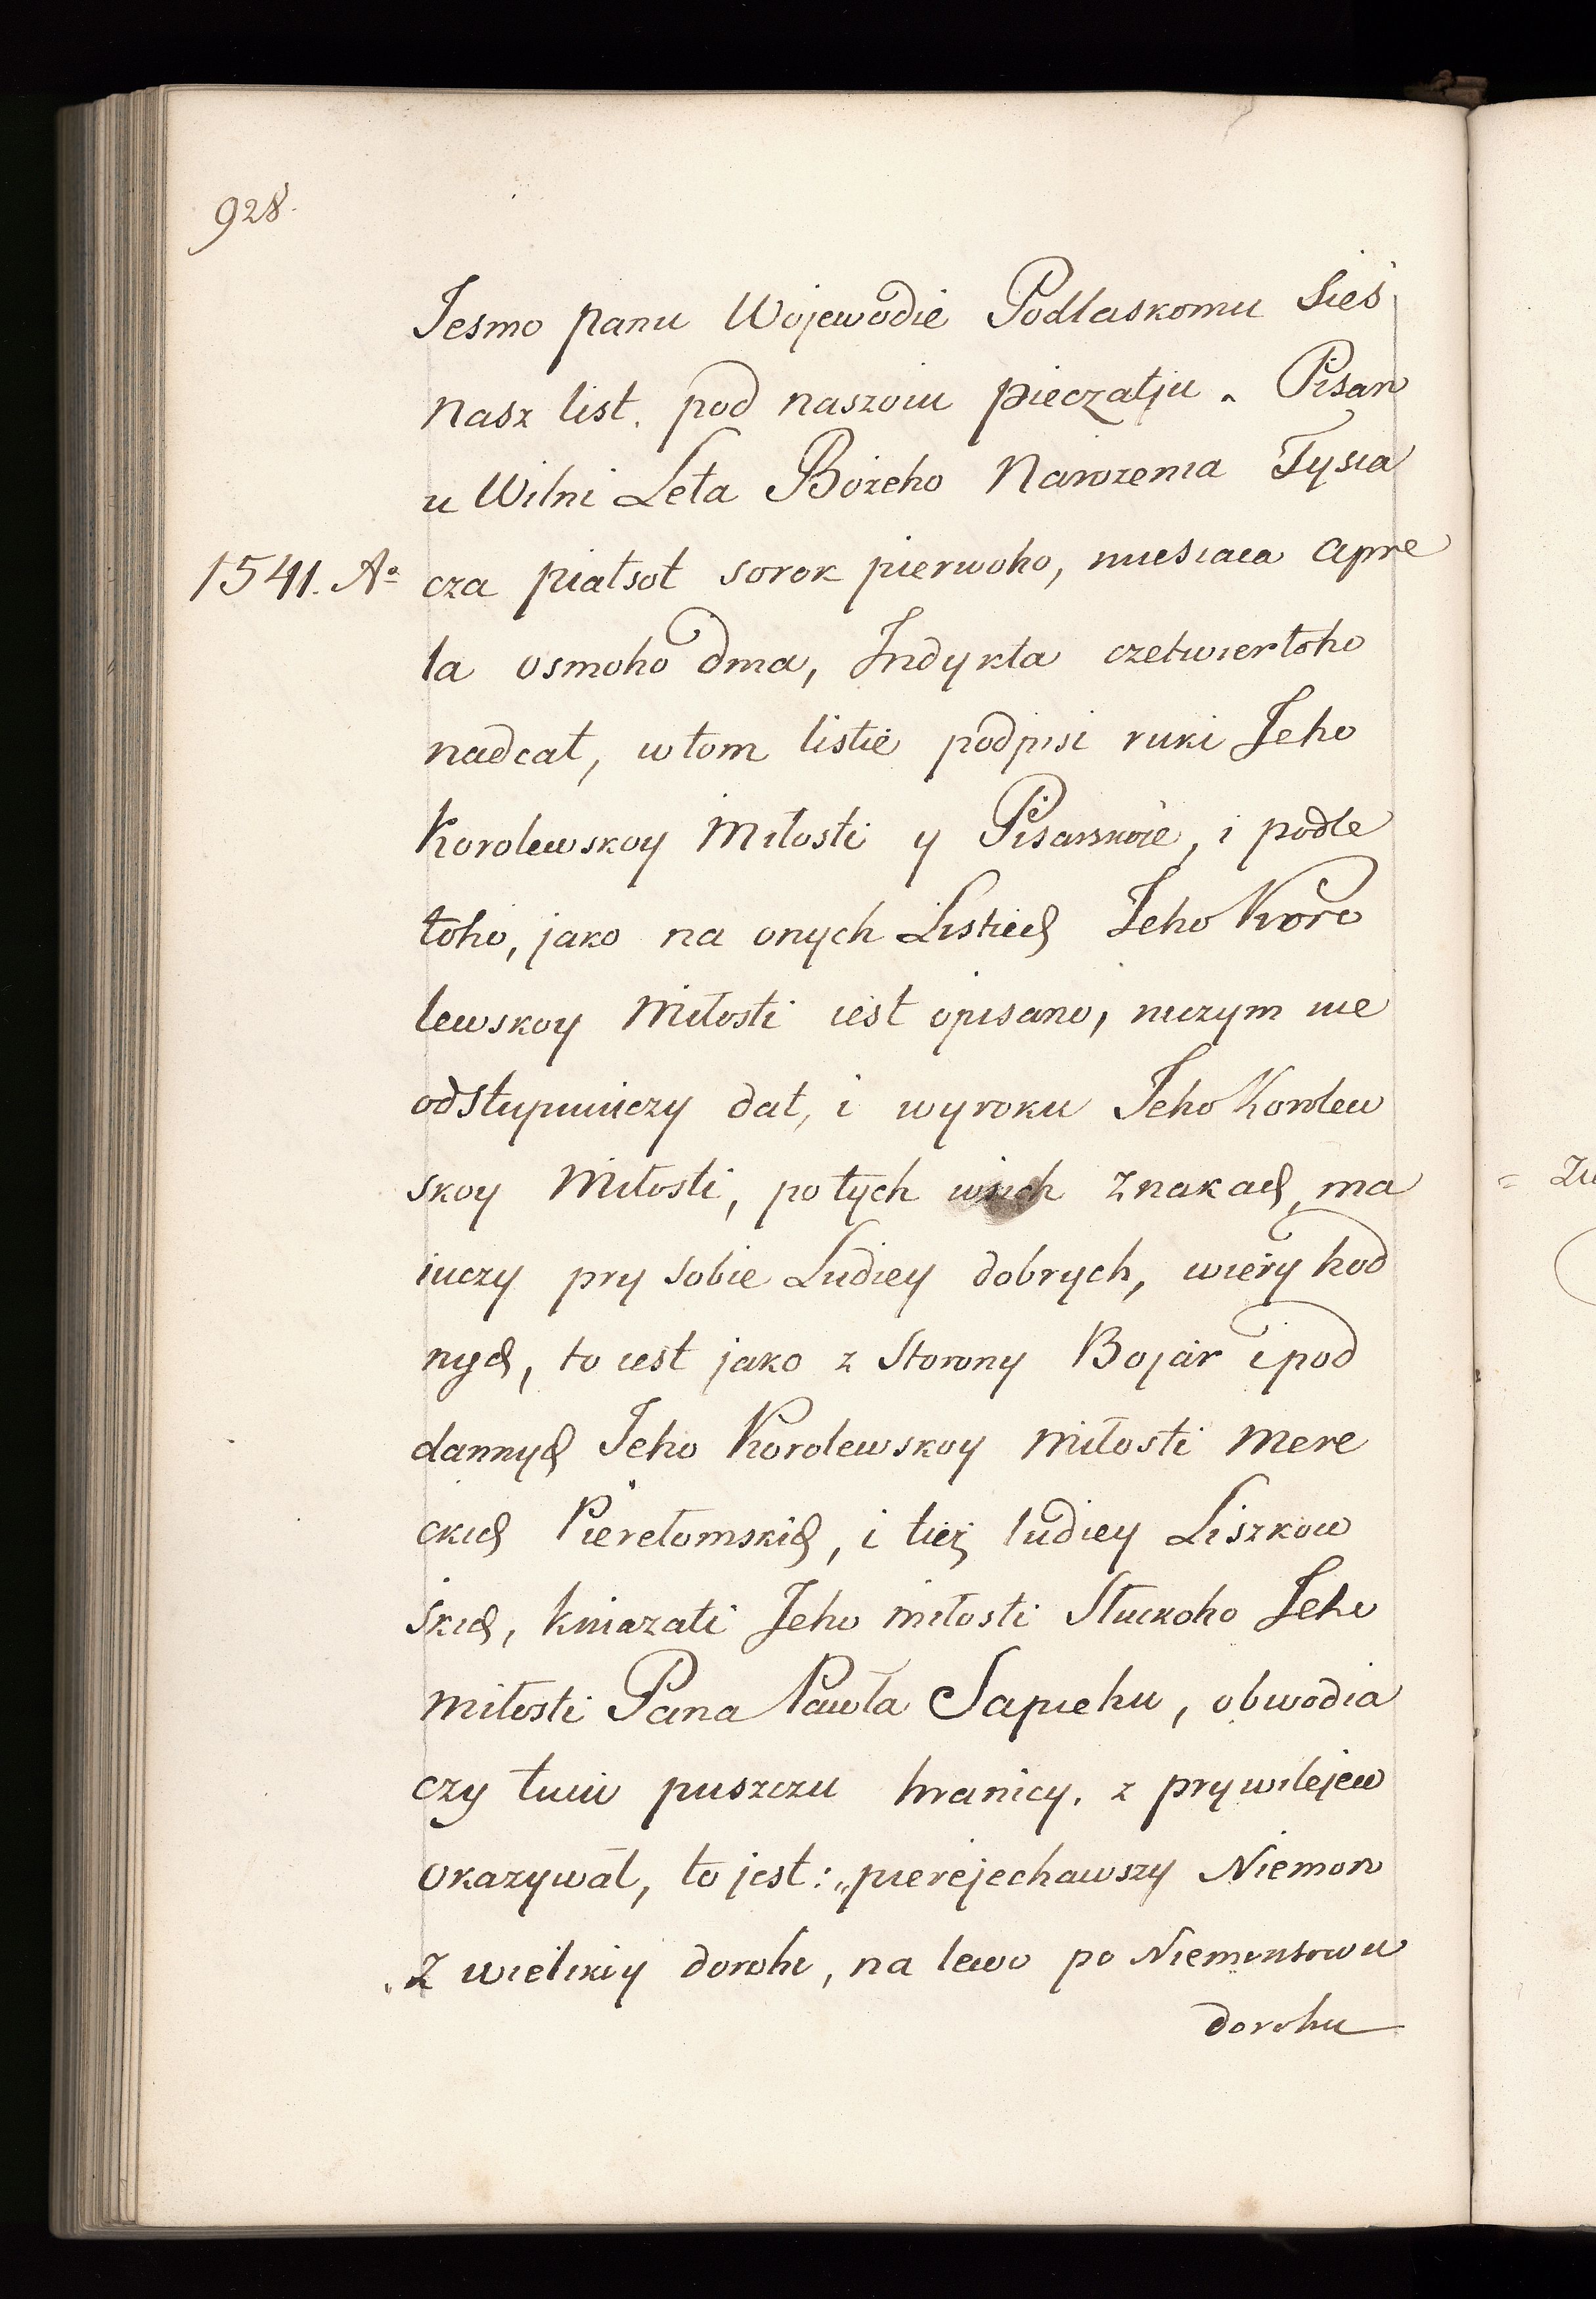 928.
Jesmo panu Wojewodie Podlaskomu Sieś
nasz list. pod naszoiu pieczatju. Pisan
u Wilni Leta Bożeho Narozenia Tysia
1541. Aº cza piatsot sorok pierwoho, miesiaca apre
la osmoho dnia, Indykta czetwiertoho
nadcat, wtom listie podpisi ruki Jeho
Korolewskoy Miłosti y Pisarskoie, i podle
toho, jako na onych Listiech Jeho Koro
lewskoy Miłosti iest opisano, niczym nie
odstupuiuczy dał, i wyroku Jeho Korolew
skoy Miłosti, po tych wsich znakach, ma
iuczy pry sobie Ludiey dobrych, wiery hod
nych, to iest jako z Storony Bojar i pod
dannych Jeho Korolewskoy miłosti Mere
ckich Pierełomskich, i tież ludiey Liszkow
skich, kniazati Jeho miłosti Słuckoho Jeho
miłosti Pana Pawła Sapiehu, obwodia
czy tuiu puszczu hranicy. z prywilejew
okazywał, to jest: „pierejechawszy Niemon
„z wielikiy dorohi, na lewo po Niemonsowu
dorohu